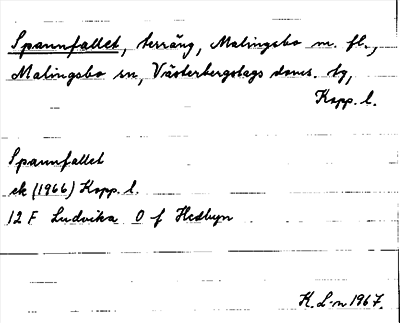 Spannfallet, terräng, Malingsbo m. fl.,
Malingsbo sn, Västerbergslags doms. tg,
Kopp. l.
Spannfallet
ek (1966) Kopp. l.
12 F Ludvika 0 f Hedbyn
K. L-n 1967.